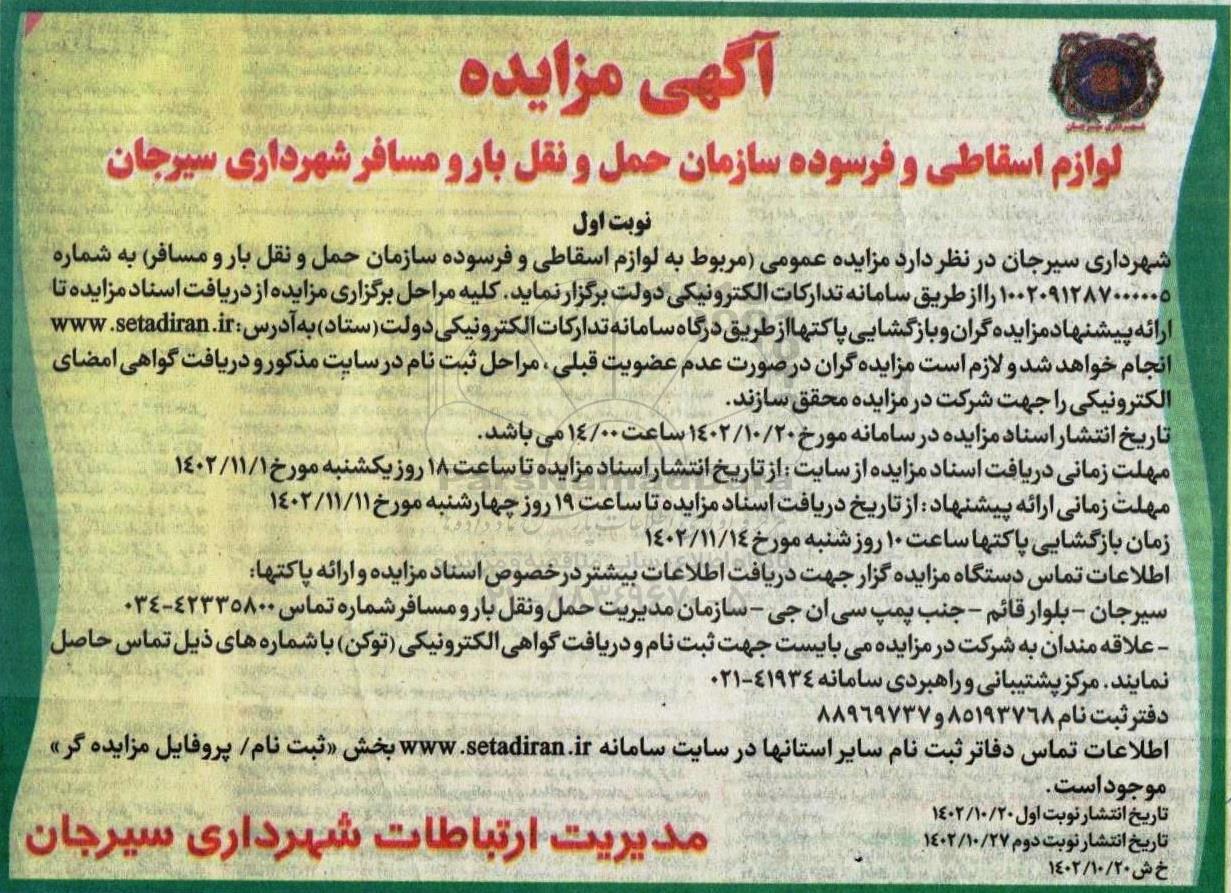 آگهی مزایده
شهرداری سیرجان
لوازم اسقاطی و فرسوده سازمان حمل و نقل بار و مسافر شهرداری سیرجان
نوبت اول
شهرداری سیرجان در نظر دارد مزایده عمومی (مربوط به لوازم اسقاطی و فرسوده سازمان حمل و نقل بار و مسافر) به شماره
۱۰۰۲۰۹۱۲۸۷۰۰۰۰۰۵ را از طریق سامانه تدارکات الکترونیکی دولت برگزار نماید. کلیه مراحل برگزاری مزایده از دریافت اسناد مزایده تا
ارائه پیشنهاد مزایده گران و بازگشایی پاکتها از طریق درگاه سامانه تدارکات الکترونیکی دولت (ستاد) به آدرس: www.setadiran.ir
انجام خواهد شد و لازم است مزایده گران در صورت عدم عضویت قبلی، مراحل ثبت نام در سایت مذکور و دریافت گواهی امضای
الکترونیکی را جهت شرکت در مزایده محقق سازند.
تاریخ انتشار اسناد مزایده در سامانه مورخ ۱۴۰۲/۱۰/۲۰ ساعت ۱۴/۰۰ می باشد.
مهلت زمانی دریافت اسناد مزایده از سایت: از تاریخ انتشار اسناد مزایده تا ساعت ۱۸ روز یکشنبه مورخ ۱۴۰۲/۱۱/۱
مهلت زمانی ارائه پیشنهاد: از تاریخ دریافت اسناد مزایده تا ساعت ۱۹ روز چهارشنبه مورخ ۱۴۰۲/۱۱/۱۱
زمان بازگشایی پاکتها ساعت ۱۰ روز شنبه مورخ ۱۴۰۲/۱۱/۱۴
اطلاعات تماس دستگاه مزایده گزار جهت دریافت اطلاعات بیشتر در خصوص اسناد مزایده و ارائه پاکتها:
سیرجان - بلوار قائم - جنب پمپ سی ان جی - سازمان مدیریت حمل ونقل بار و مسافر شماره تماس ۴۲۳۳۵۸۰۰-۰۳۴
- علاقه مندان به شرکت در مزایده می بایست جهت ثبت نام و دریافت گواهی الکترونیکی (توکن) با شماره های ذیل تماس حاصل
نمایند. مرکز پشتیبانی و راهبردی سامانه ۴۱۹۳۴-۰۲۱
دفتر ثبت نام ۸۵۱۹۳۷۶۸ و ۸۸۹۶۹۷۳۷
اطلاعات تماس دفاتر ثبت نام سایر استانها در سایت سامانه www.setadiran.ir بخش «ثبت نام/ پروفایل مزایده گر»
موجود است.
تاریخ انتشار نوبت اول ۱۴۰۲/۱۰/۲۰
تاریخ انتشار نوبت دوم ۱۴۰۲/۱۰/۲۷
خ ش ۱۴۰۲/۱۰/۲۰
مدیریت ارتباطات شهرداری سیرجان